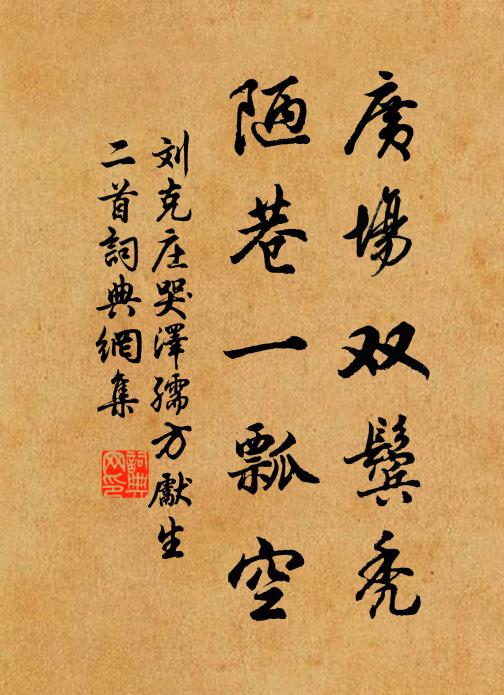 廣場双鬢秃
陋巷一瓢空
刘克庄哭澤孺方獻生
二首詞典網集
詞典网印